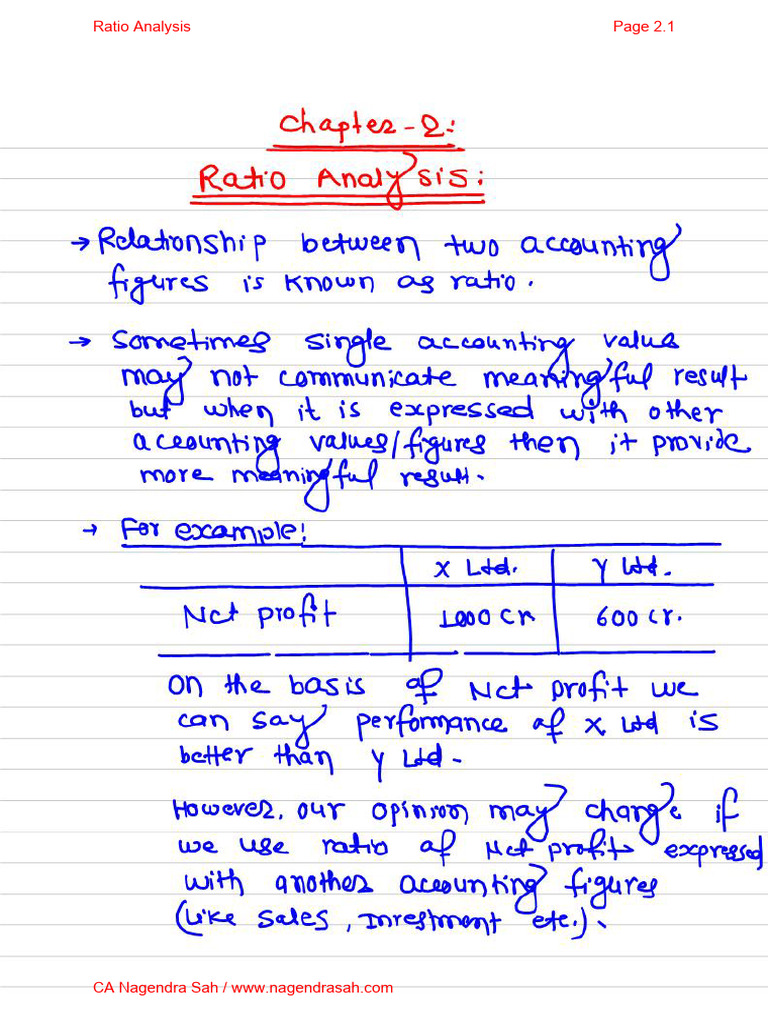 Ratio Analysis Page 2.1
Chapter-2:
Ratio Analysis:
→ Relationship between two accounting
figures is known as ratio.
→ Sometimes single accounting value
may not communicate meaningful result
but when it is expressed with other
accounting values/figures then it provide
more meaningful result.
→ For example:
X Ltd. Y Ltd.
Net profit 1000 cr 600 cr.
On the basis of Net profit we
can say performance of X Ltd is
better than Y Ltd.
However, our opinion may change if
we use ratio of Net profit expressed
with another accounting figures
(Like sales, Investment etc.).
CA Nagendra Sah / www.nagendrasah.com